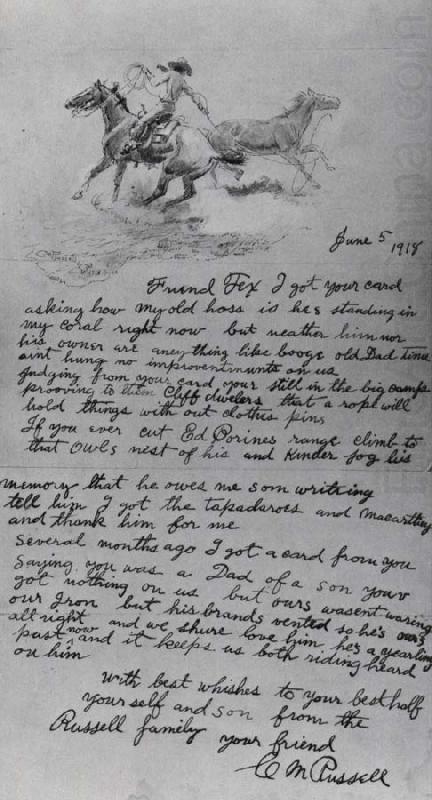 June 5 1918
Friend Tex I got your card
asking how my old hoss is hes standing in
my coral right now but neather him nor
his owner are aney thing like booge old Dad time
aint hung no improvenmunts on us
Judging from your card your still in the big camps
prooving to them Cliff dwelers that a rope will
hold things with out clothes pins
If you ever cut Ed Borines range climb to
that Owls nest of his and kinder jog his
memory that he owes me som writeing
tell him I got the tapadaross and Macarthy
and thank him for me
Several months ago I got a card from you
saying you was a Dad of a son your
got nothing on us but ours wasent waring
our Iron but his brands vented so he's ours
all right now and we shure love him he's a yearling
past and it keeps us both riding heard
on him
With best whishes to your best half
your self and son from the
Russell family your friend
C M Russell